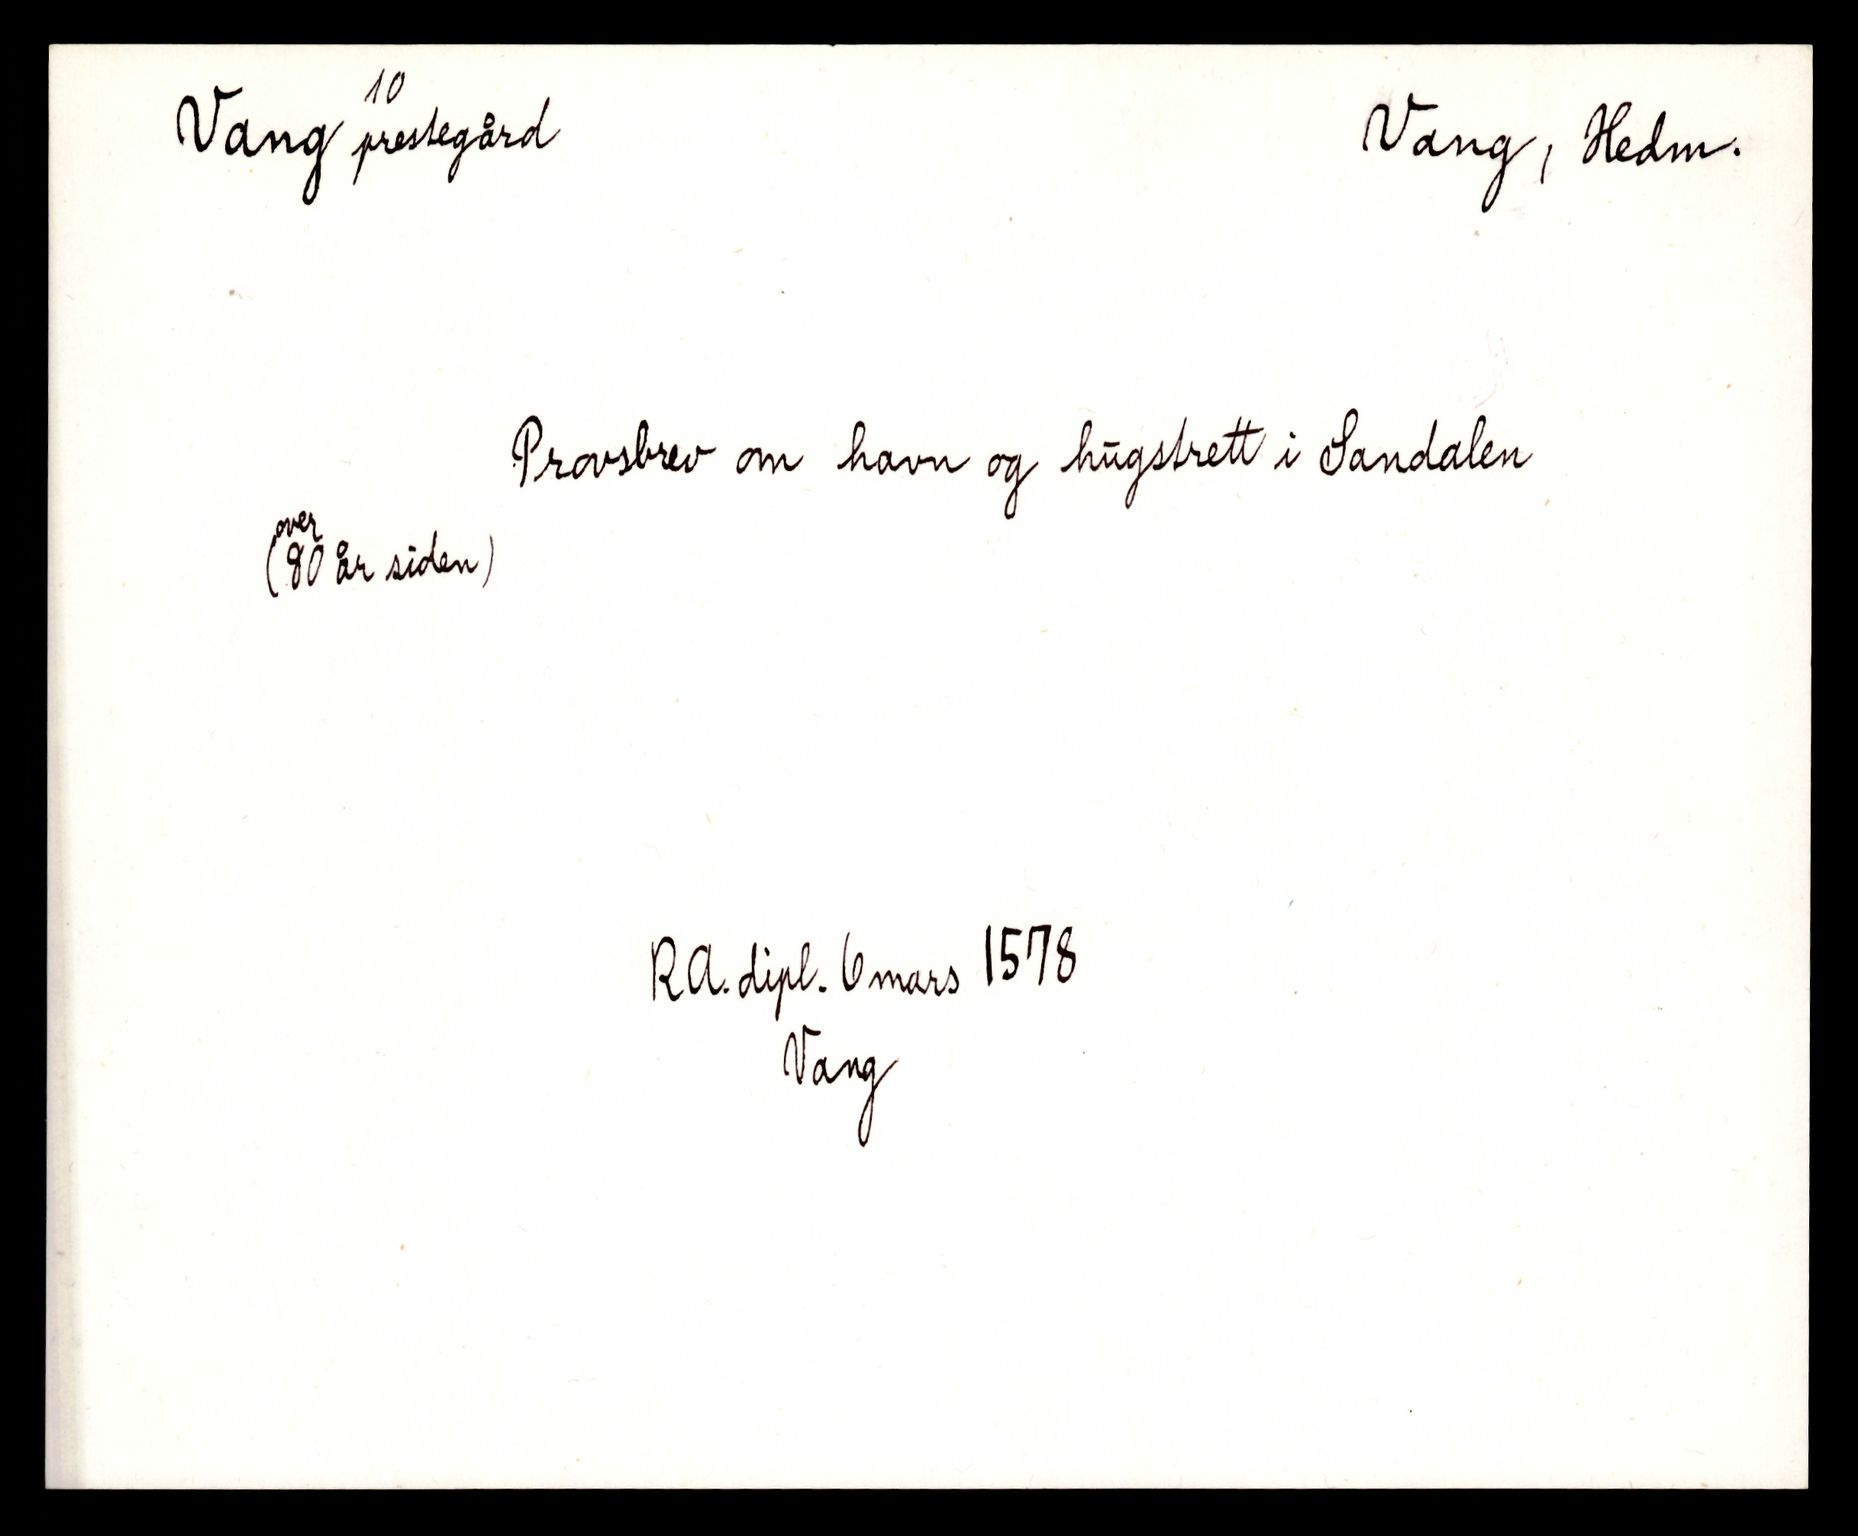 Vang 10 prestegård
Vang, Hedm.
Provsbrev om havn og hugstrett i Sandalen
(over 80 år siden)
RA. dipl. 6 mars 1578
Vang